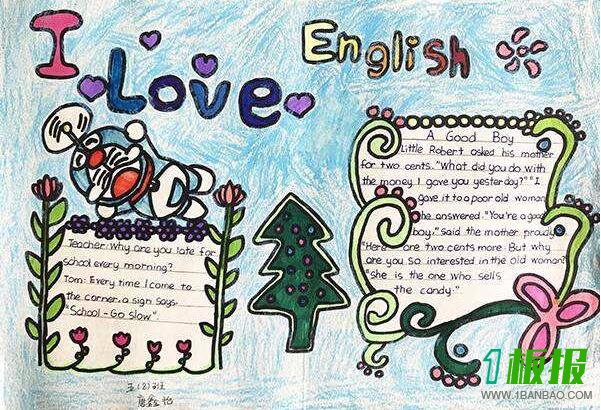 I Love English
Teacher: Why are you late for
school every morning?
Tom: Every time I come to
the corner, a sign says,
"School - Go slow".
A Good Boy
Little Robert asked his mother
for two cents. "What did you do with
the money I gave you yesterday?" "I
gave it to a poor old woman,
he answered. "You're a good
boy," said the mother proudly.
"Here are two cents more. But why
are you so interested in the old woman?"
"She is the one who sells
the candy."
五(8)班
1板报
WWW.1BANBAO.COM